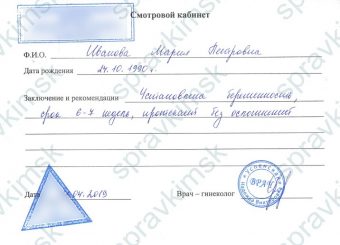 Смотровой кабинет
Ф.И.О. Иванова Мария Петровна
Дата рождения 24.10.1990 г.
Заключение и рекомендации Установлена беременность,
срок 6-7 недель, протекает без осложнений
Дата 04.2019 Врач – гинеколог
ВРАЧ
spravkimsk